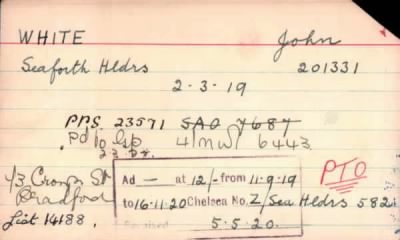 WHITE John
Seaforth Hldrs 201331
2-3-19
PPS 23571 SAO 7687
pd to Lsp 4/MW/ 6443
2 3
1/3 Crown St PTO
Bradford
List 14188.
Ad — at 12/- from 11-9-19
to 16-11-20 Chelsea No. Z/Sea Hldrs 582
5-5-20.